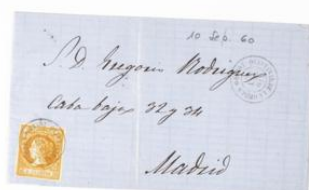 10 Feb. 60
S. D. Gregorio Rodriguez
Caba baja 32 y 34
Madrid